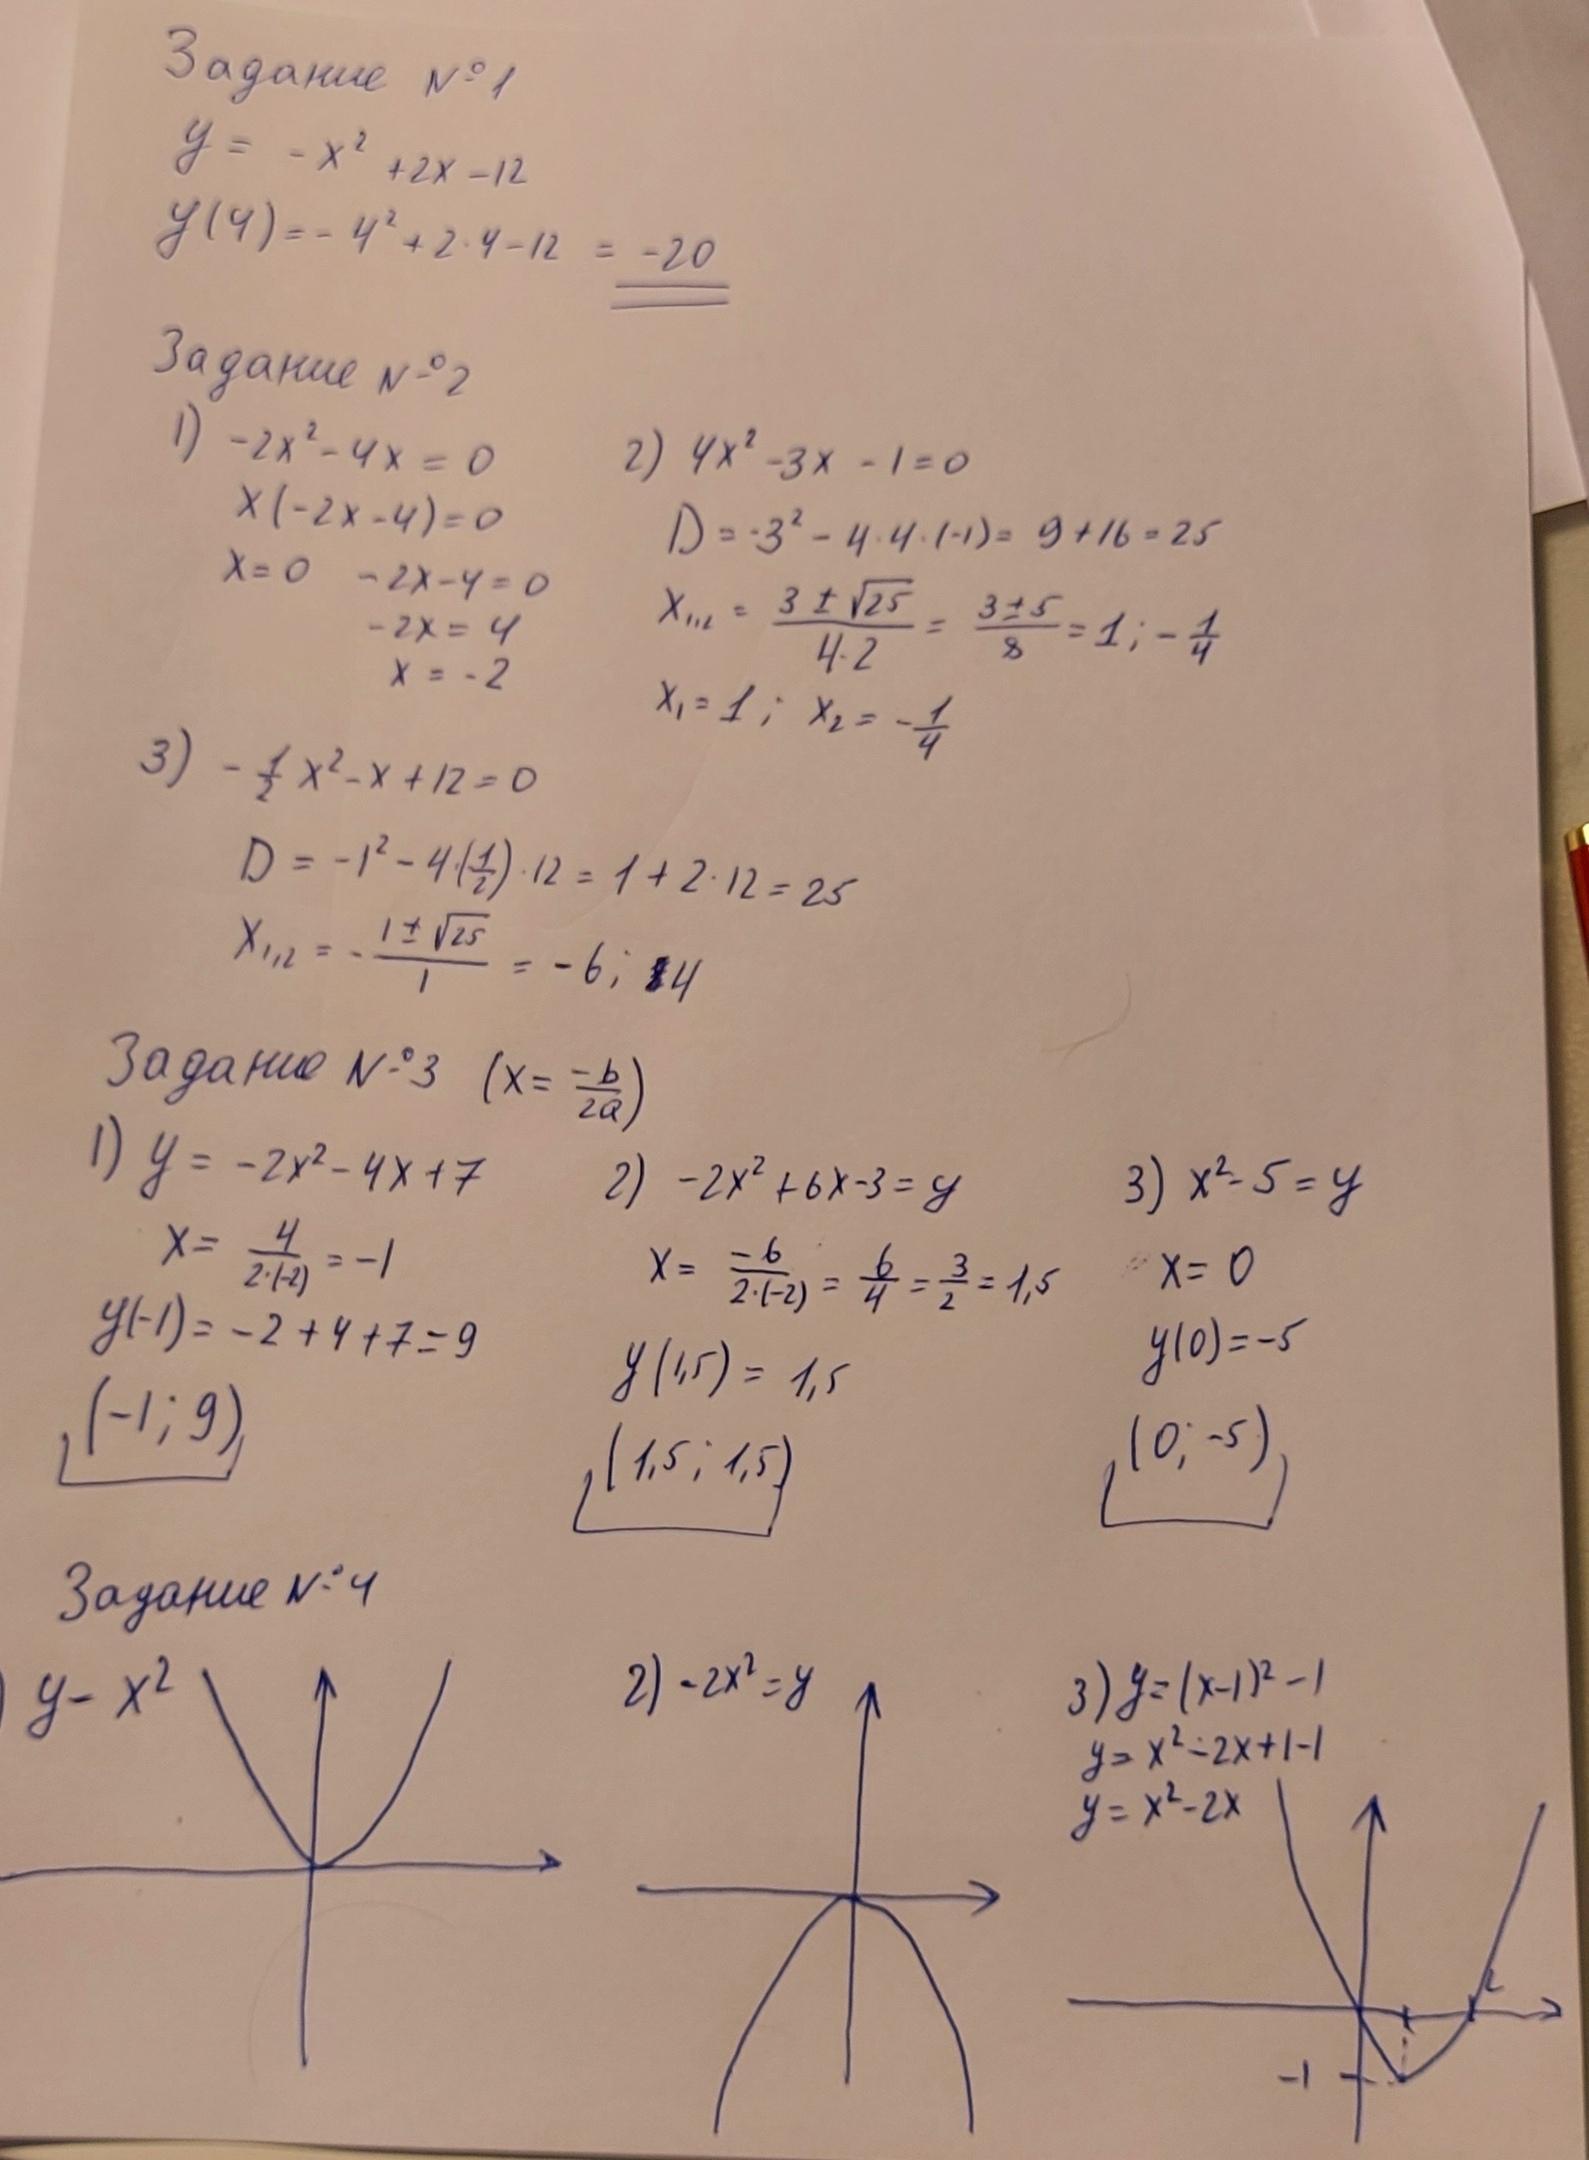 Задание №1
y = -x² +2x -12
y(4) = -4² + 2·4 - 12 = -20
Задание №2
1) -2x² - 4x = 0
x(-2x-4)=0
x=0 -2x-4=0
-2x = 4
x = -2
2) 4x² -3x -1=0
D = -3² - 4·4·(-1) = 9+16=25
x₁,₂ = (3 ± √25)/(4·2) = (3±5)/8 = 1; -1/4
x₁ = 1; x₂ = -1/4
3) -1/2 x² - x + 12 = 0
D = -1² - 4·(1/2)·12 = 1 + 2·12 = 25
x₁,₂ = -(1 ± √25)/1 = -6; 4
Задание №3 (x = -b/2a)
1) y = -2x² - 4x + 7
x = 4/(2·(-2)) = -1
y(-1) = -2 + 4 + 7 = 9
(-1; 9)
2) -2x² + 6x - 3 = y
x = -6/(2·(-2)) = 6/4 = 3/2 = 1,5
y(1,5) = 1,5
(1,5; 1,5)
3) x² - 5 = y
x = 0
y(0) = -5
(0; -5)
Задание №4
) y - x²
2) -2x² = y
3) y = (x-1)² - 1
y = x² - 2x + 1 - 1
y = x² - 2x
2
-1